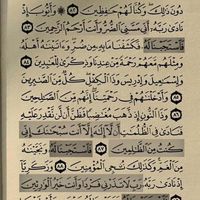 دُونَ ذَٰلِكَ وَكُنَّا لَهُمْ حَٰفِظِينَ ٨٢ وَأَيُّوبَ إِذْ
نَادَىٰ رَبَّهُۥٓ أَنِّي مَسَّنِيَ ٱلضُّرُّ وَأَنتَ أَرْحَمُ ٱلرَّٰحِمِينَ ٨٣
فَٱسْتَجَبْنَا لَهُۥ فَكَشَفْنَا مَا بِهِۦ مِن ضُرٍّ وَءَاتَيْنَٰهُ أَهْلَهُۥ
وَمِثْلَهُم مَّعَهُمْ رَحْمَةً مِّنْ عِندِنَا وَذِكْرَىٰ لِلْعَٰبِدِينَ ٨٤
وَإِسْمَٰعِيلَ وَإِدْرِيسَ وَذَا ٱلْكِفْلِ كُلٌّ مِّنَ ٱلصَّٰبِرِينَ ٨٥
وَأَدْخَلْنَٰهُمْ فِي رَحْمَتِنَآ إِنَّهُم مِّنَ ٱلصَّٰلِحِينَ ٨٦
وَذَا ٱلنُّونِ إِذ ذَّهَبَ مُغَٰضِبًا فَظَنَّ أَن لَّن نَّقْدِرَ عَلَيْهِ
فَنَادَىٰ فِي ٱلظُّلُمَٰتِ أَن لَّآ إِلَٰهَ إِلَّآ أَنتَ سُبْحَٰنَكَ إِنِّي
كُنتُ مِنَ ٱلظَّٰلِمِينَ ٨٧ فَٱسْتَجَبْنَا لَهُۥ وَنَجَّيْنَٰهُ
مِنَ ٱلْغَمِّ وَكَذَٰلِكَ نُۨجِي ٱلْمُؤْمِنِينَ ٨٨ وَزَكَرِيَّآ
إِذْ نَادَىٰ رَبَّهُۥ رَبِّ لَا تَذَرْنِي فَرْدًا وَأَنتَ خَيْرُ ٱلْوَٰرِثِينَ ٨٩